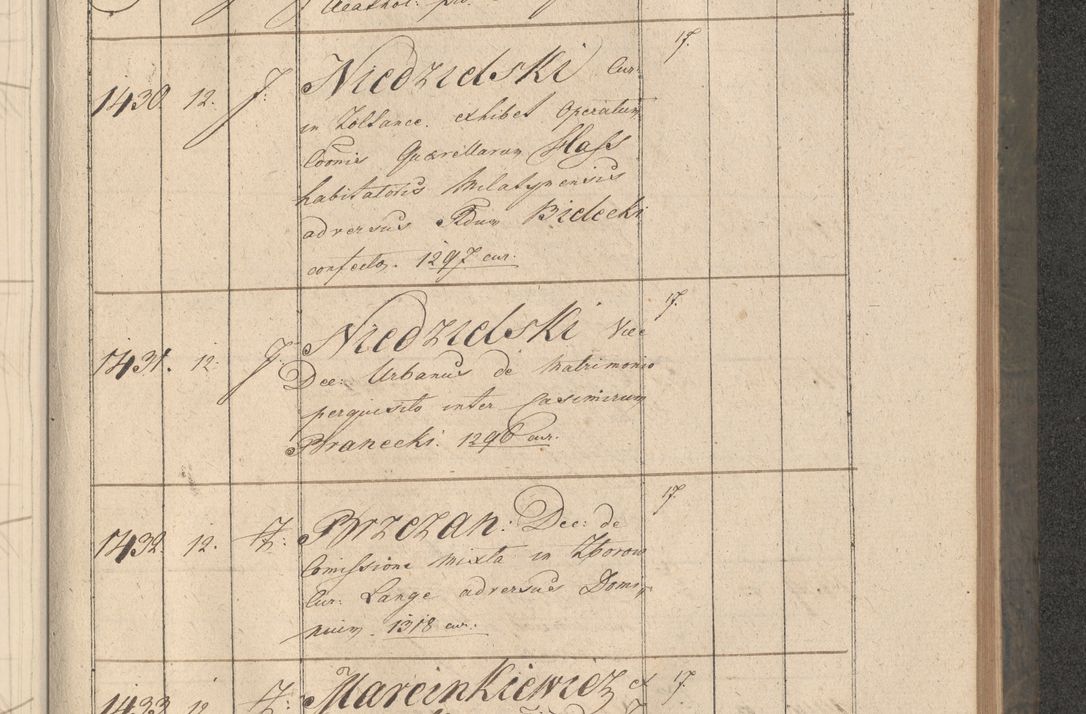 1430. 12. J: Niedzielski Cur: 17.
in Zoltance. exhibet Operatum
Coonis Quaerellarum Hass
habitatoris Milatynensis
adversus Rdum Bielecki
confectos. 1297 cur.
1431. 12. J: Niedzielski Vice 17.
Dec: Urbanus de Matrimonio
perquisito inter Casimirum
Branecki. 1296 cur.
1432. 12. Z: Brzezan: Dec: de 17.
Comissione Mixta in Zborow
Cur: Lange adversus Domi,
nium. 1318 cur.
1433 12 Z: Marcinkiewicz ex 17.